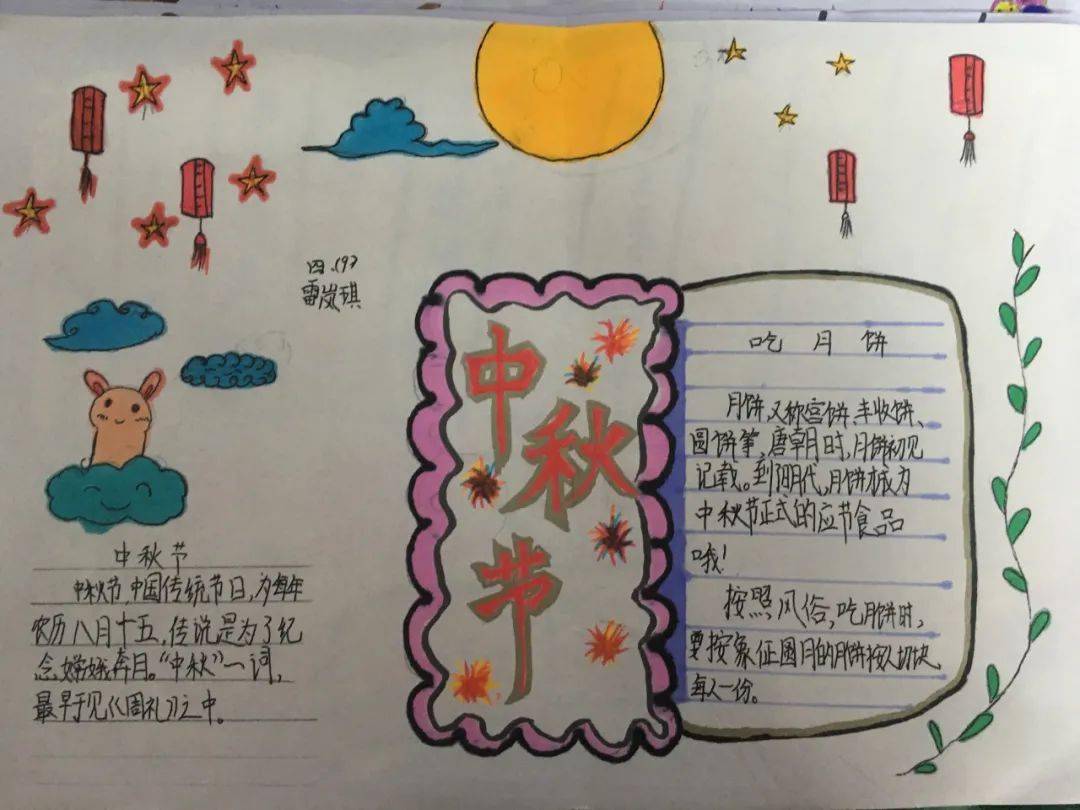 雷岚琪
中秋节
中秋节
中秋节,中国传统节日,为每年
农历八月十五,传说是为了纪
念嫦娥奔月。“中秋”一词,
最早于见《周礼》之中。
吃月饼
月饼,又称宫饼、丰收饼、
圆饼等,唐朝时,月饼初见
记载。到明代,月饼才成为
中秋节正式的应节食品
哦!
按照风俗,吃月饼时,
要按象征圆月的月饼按人切块,
每人一份。